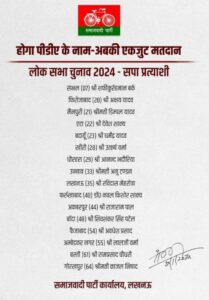 समाजवादी पार्टी
होगा पीडीए के नाम-अबकी एकजुट मतदान
लोक सभा चुनाव 2024 - सपा प्रत्याशी
संभल (07) श्री शफीकुर्रहमान बर्क
फिरोजाबाद (20) श्री अक्षय यादव
मैनपुरी (21) श्रीमती डिम्पल यादव
एटा (22) श्री देवेश शाक्य
बदायूँ (23) श्री धर्मेंद्र यादव
खीरी (28) श्री उत्कर्ष वर्मा
धौरहरा (29) श्री आनन्द भदौरिया
उन्नाव (33) श्रीमती अनु टण्डन
लखनऊ (35) श्री रविदास मेहरोत्रा
फर्रुखाबाद (40) डॉ० नवल किशोर शाक्य
अकबरपुर (44) श्री राजाराम पाल
बाँदा (48) श्री शिवशंकर सिंह पटेल
फैजाबाद (54) श्री अवधेश प्रसाद
अम्बेडकर नगर (55) श्री लालजी वर्मा
बस्ती (61) श्री रामप्रसाद चौधरी
गोरखपुर (64) श्रीमती काजल निषाद
समाजवादी पार्टी कार्यालय, लखनऊ